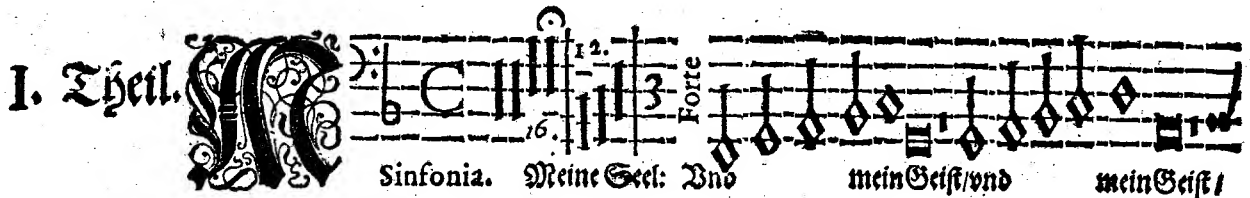 I. Theil. M
12.
3
Forte
16.
1
1
Sinfonia. Meine Seel: Vnd mein Geist/vnd mein Geist/